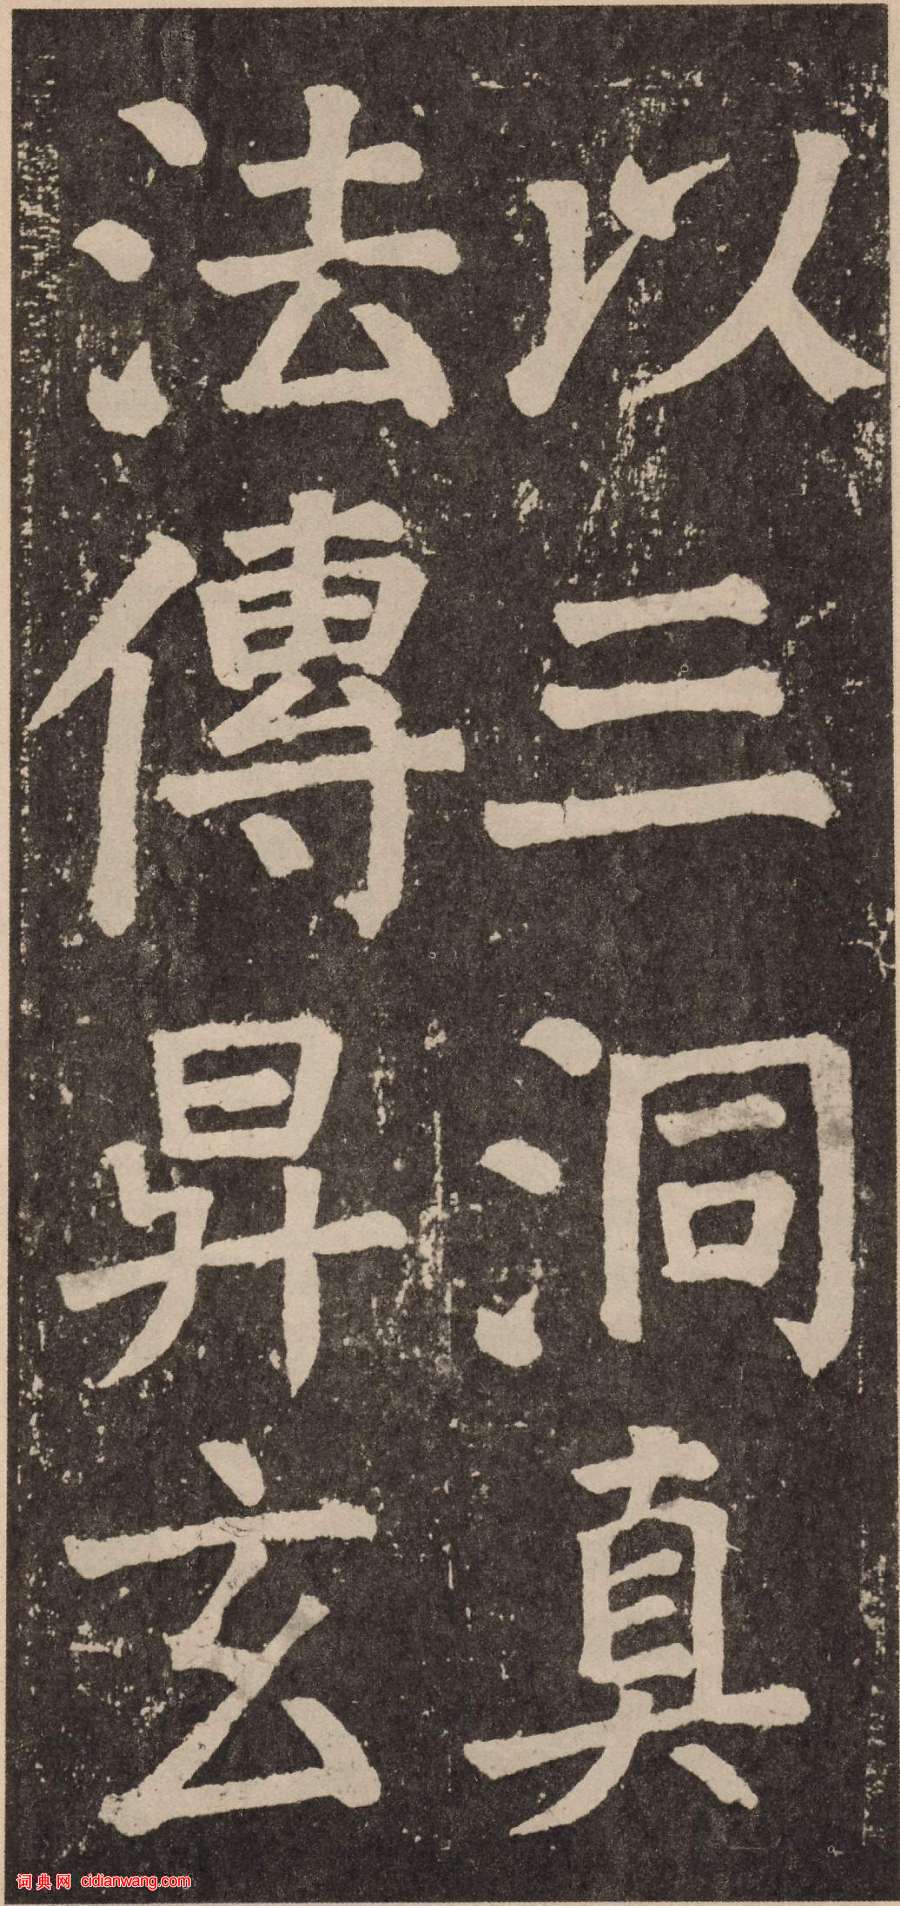 以三洞真
法傳昇玄
词典网 cidianwang.com